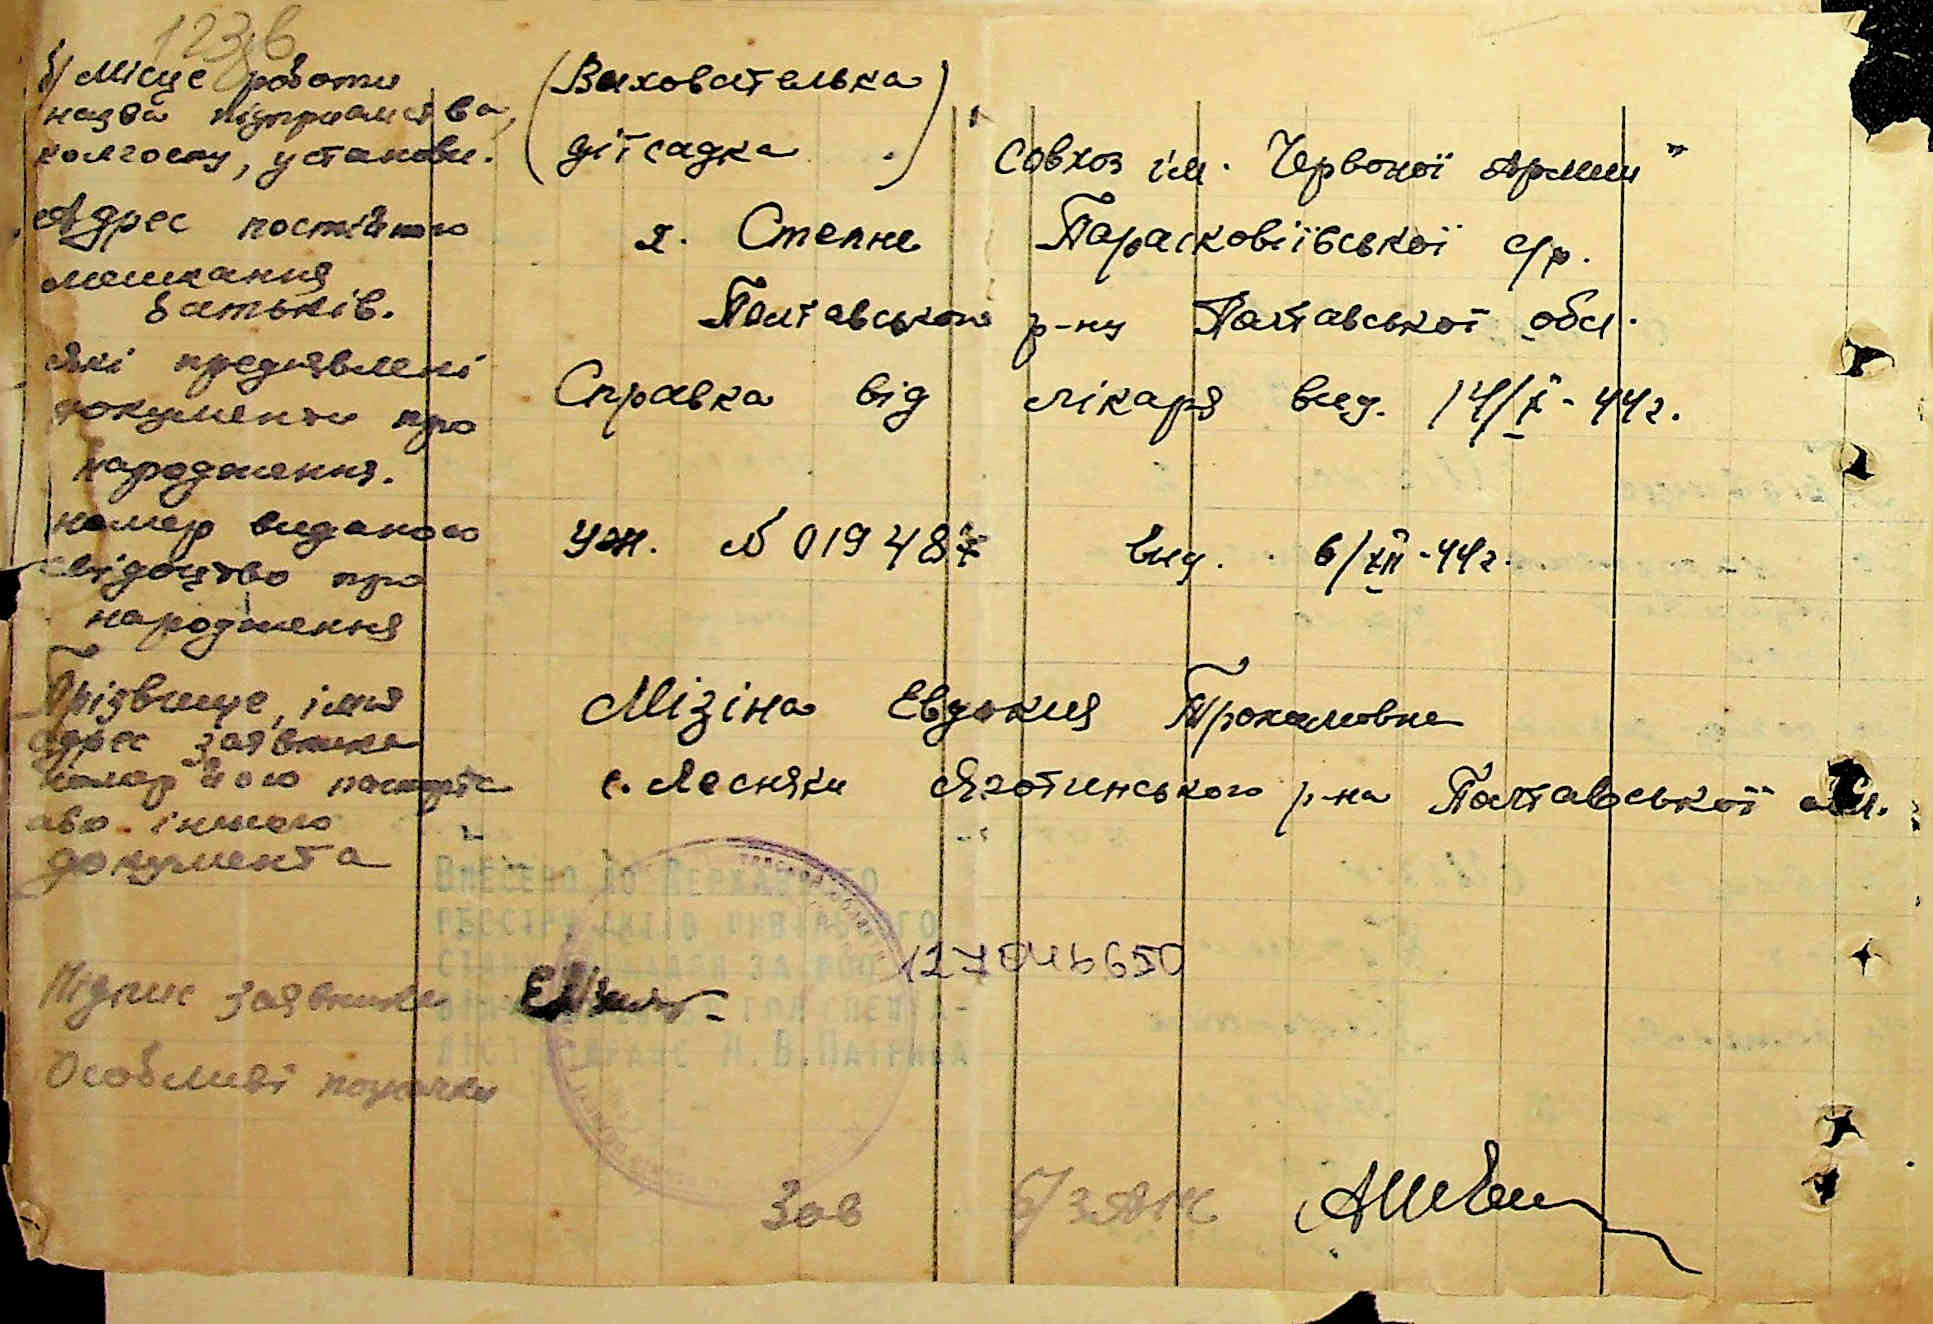 123в
б/ Місце роботи
назва підприємства,
колгоспу, установи.
(Вихователька
дітсадка.)
"Совхоз ім. Червоної Армии"
Адрес постійного
мешкання
батьків.
х. Степне Парасковіївської с/р.
Полтавського р-ну Полтавської обл.
Які предявлені
документи про
народження.
Справка від лікаря вид. 14/X-44г.
номер виданого
свідоцтво про
народження
УЖ. № 019487 вид. 6/XII-44г.
Прізвище, імя
адрес заявника
номер його паспорта
або іншого
документа
Мізіна Евдокия Прокамовна
с. Лесняки Яготинського р-на Полтавської обл.
Внесено до Державного
реєстру актів цивільного
стану громадян за №00
127046650
Підпис заявника
Особливі позначки
ліст Н.В.Патріна
Зав б/ЗАГС